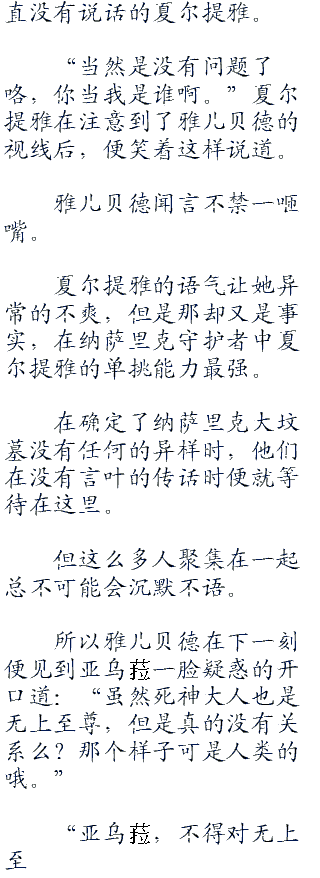 直没有说话的夏尔提雅。
“当然是没有问题了
咯，你当我是谁啊。”夏尔
提雅在注意到了雅儿贝德的
视线后，便笑着这样说道。
雅儿贝德闻言不禁一咂
嘴。
夏尔提雅的语气让她异
常的不爽，但是那却又是事
实，在纳萨里克守护者中夏
尔提雅的单挑能力最强。
在确定了纳萨里克大坟
墓没有任何的异样时，他们
在没有言叶的传话时便就等
待在这里。
但这么多人聚集在一起
总不可能会沉默不语。
所以雅儿贝德在下一刻
便见到亚乌菈一脸疑惑的开
口道：“虽然死神大人也是
无上至尊，但是真的没有关
系么？那个样子可是人类的
哦。”
“亚乌菈，不得对无上
至